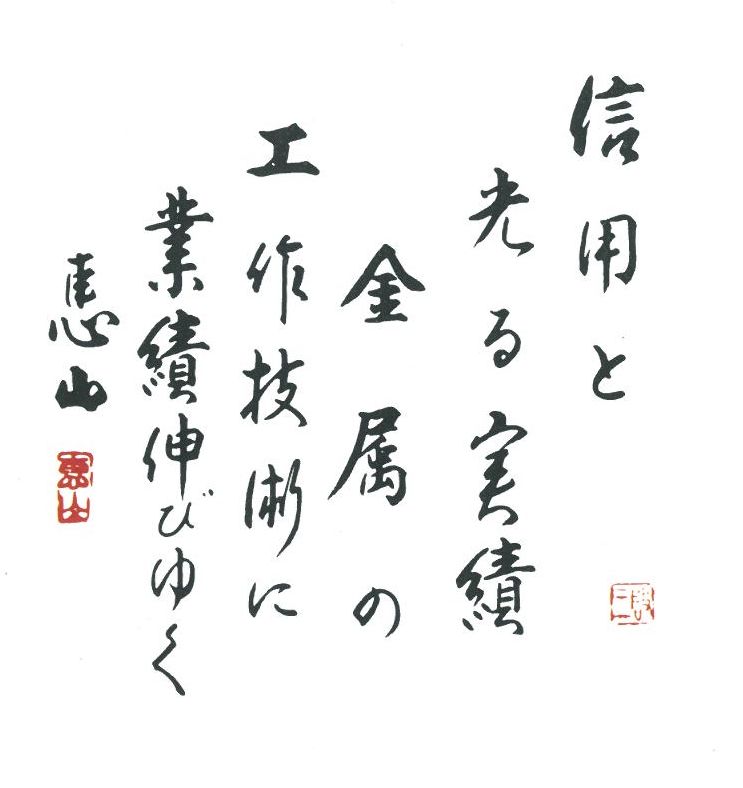 信用と
光る実績
金属の
工作技術に
業績伸びゆく
恵山
恵山